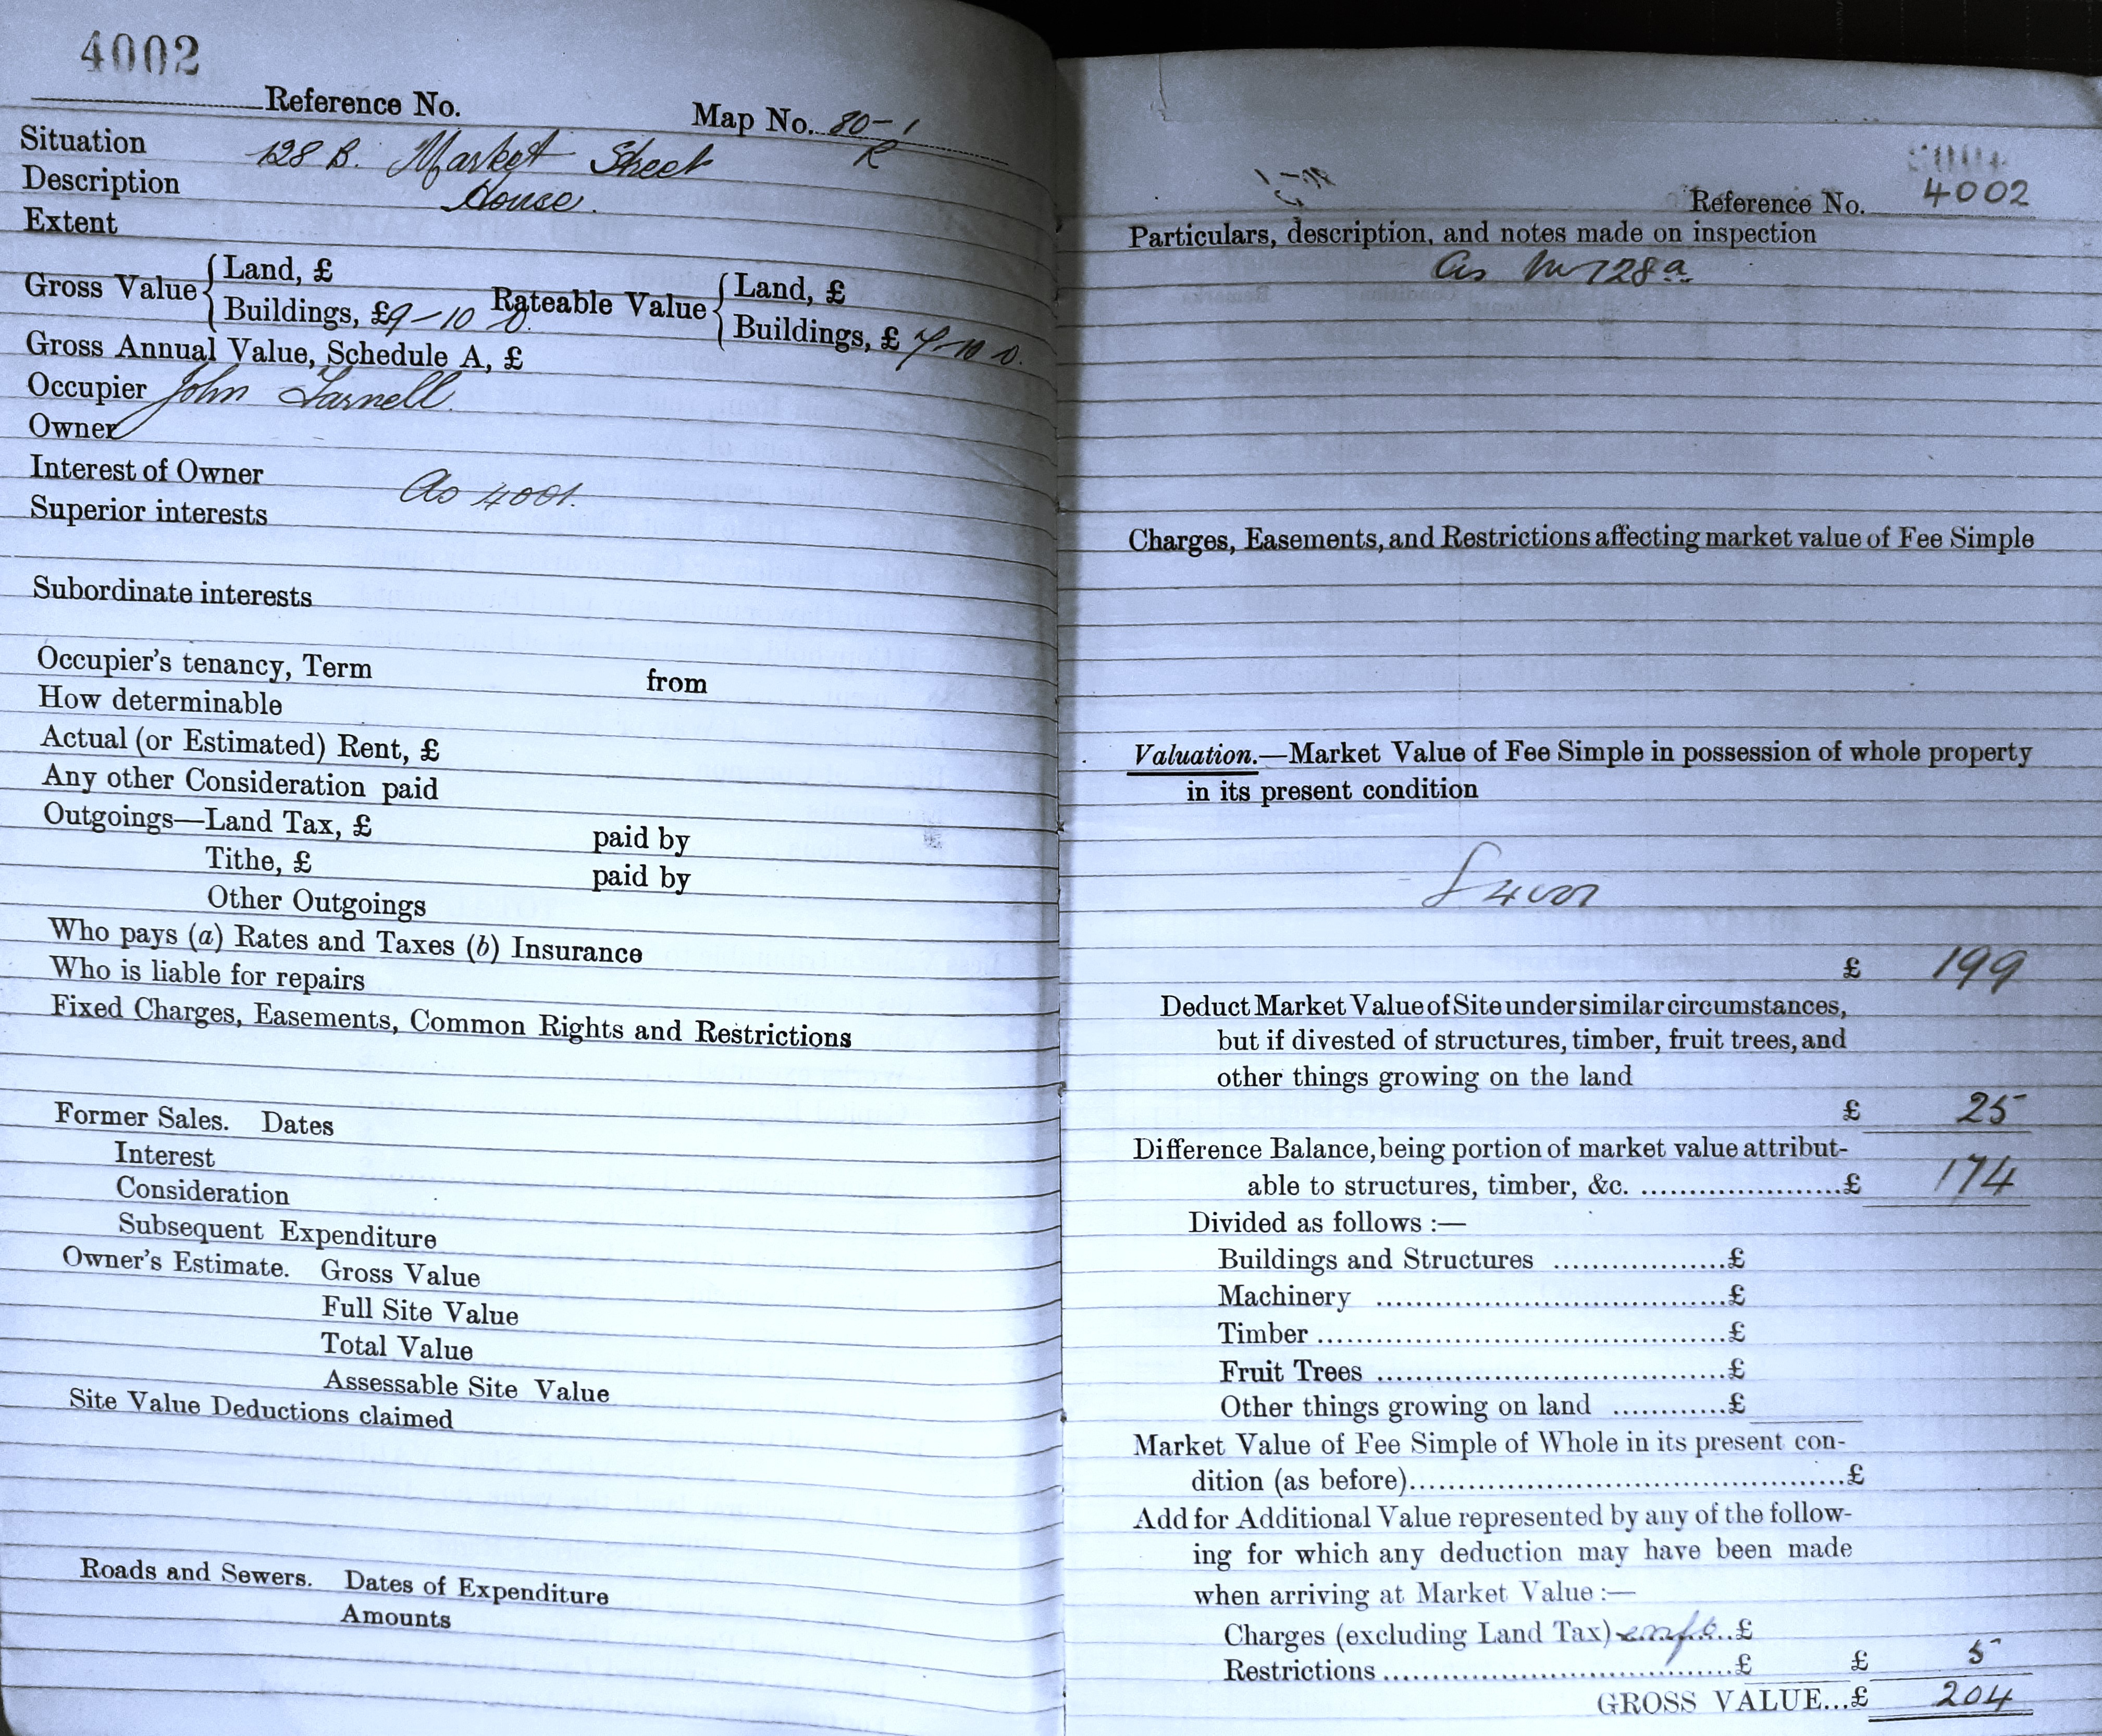 4002
Reference No.
Map No. 80-1
R
Situation 128 B. Market Street
Description House.
Extent
Gross Value { Land, £
Buildings, £9-10 0. Rateable Value { Land, £
Buildings, £ 7-10 0.
Gross Annual Value, Schedule A, £
Occupier John
Owner
Interest of Owner
As 4001.
Superior interests
Subordinate interests
Occupier's tenancy, Term from
How determinable
Actual (or Estimated) Rent, £
Any other Consideration paid
Outgoings—Land Tax, £ paid by
Tithe, £ paid by
Other Outgoings
Who pays (a) Rates and Taxes (b) Insurance
Who is liable for repairs
Fixed Charges, Easements, Common Rights and Restrictions
Former Sales. Dates
Interest
Consideration
Subsequent Expenditure
Owner's Estimate. Gross Value
Full Site Value
Total Value
Assessable Site Value
Site Value Deductions claimed
Roads and Sewers. Dates of Expenditure
Amounts
Reference No. 4002
Particulars, description, and notes made on inspection
As 128a
Charges, Easements, and Restrictions affecting market value of Fee Simple
Valuation.—Market Value of Fee Simple in possession of whole property
in its present condition
£ 199
Deduct Market Value of Site under similar circumstances,
but if divested of structures, timber, fruit trees, and
other things growing on the land
£ 25
Difference Balance, being portion of market value attribut-
able to structures, timber, &c. .....................£ 174
Divided as follows :—
Buildings and Structures ..................£
Machinery ....................................£
Timber ..........................................£
Fruit Trees ....................................£
Other things growing on land ............£
Market Value of Fee Simple of Whole in its present con-
dition (as before)..............................................£
Add for Additional Value represented by any of the follow-
ing for which any deduction may have been made
when arriving at Market Value :—
Charges (excluding Land Tax) ..£
Restrictions ....................................£ £ 5
GROSS VALUE...£ 204